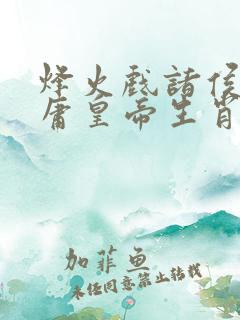 烽火戲諸侯
庸皇帝生肖
加菲鱼
未经同意禁止转载